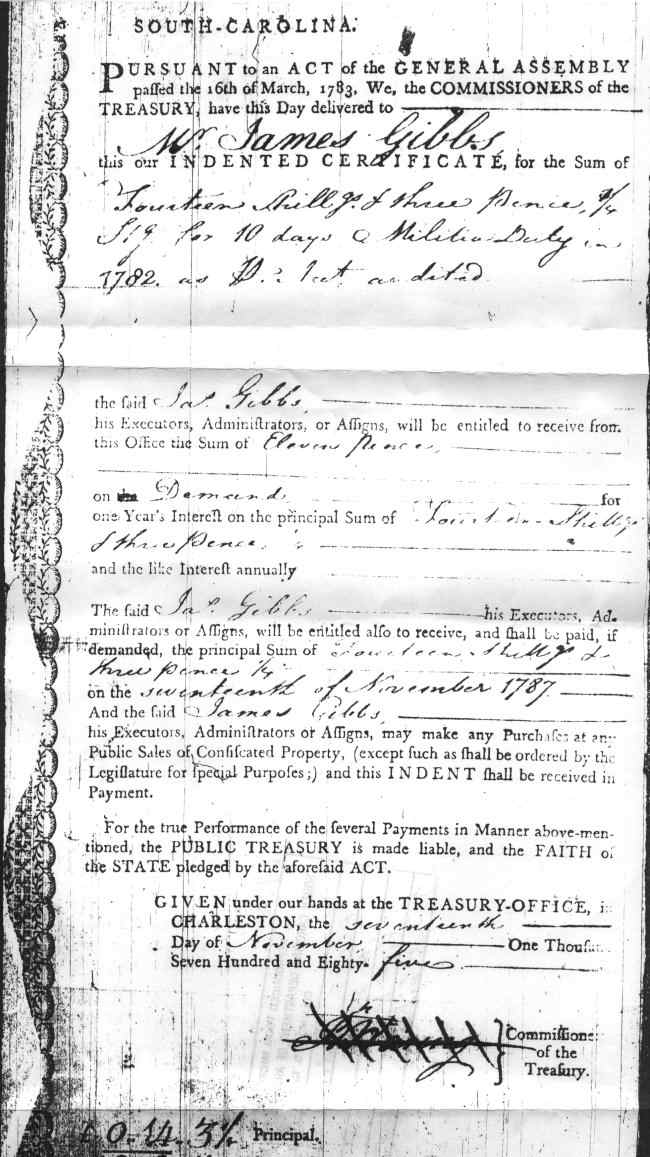 SOUTH-CAROLINA.
PURSUANT to an ACT of the GENERAL ASSEMBLY
paſſed the 16th of March, 1783, We, the COMMISSIONERS of the
TREASURY, have this Day delivered to
Mr. James Gibbs
this our INDENTED CERTIFICATE, for the Sum of
Fourteen Shillgs. & three Pence,
Stg for 10 days Militia Duty in
1782. as audited
the ſaid Jas. Gibbs
his Executors, Adminiſtrators, or Aſſigns, will be entitled to receive from
this Office the Sum of Eleven Pence,
on the Demand for
one Year's Intereſt on the principal Sum of Fourteen Shillgs
& three Pence,
and the like Intereſt annually
The ſaid Jas. Gibbs his Executors, Ad-
miniſtrators or Aſſigns, will be entitled alſo to receive, and ſhall be paid, if
demanded, the principal Sum of Fourteen Shillgs &
three Pence ¼
on the seventeenth of November 1787
And the ſaid James Gibbs,
his Executors, Adminiſtrators or Aſſigns, may make any Purchaſes at any
Public Sales of Confiſcated Property, (except ſuch as ſhall be ordered by the
Legiſlature for ſpecial Purpoſes;) and this INDENT ſhall be received in
Payment.
For the true Performance of the ſeveral Payments in Manner above-men-
tioned, the PUBLIC TREASURY is made liable, and the FAITH of
the STATE pledged by the aforeſaid ACT.
GIVEN under our hands at the TREASURY-OFFICE, in
CHARLESTON, the seventeenth
Day of November One Thouſan
Seven Hundred and Eighty-five
Commiſſione
of the
Treaſury.
0.14.3¼ Principal.